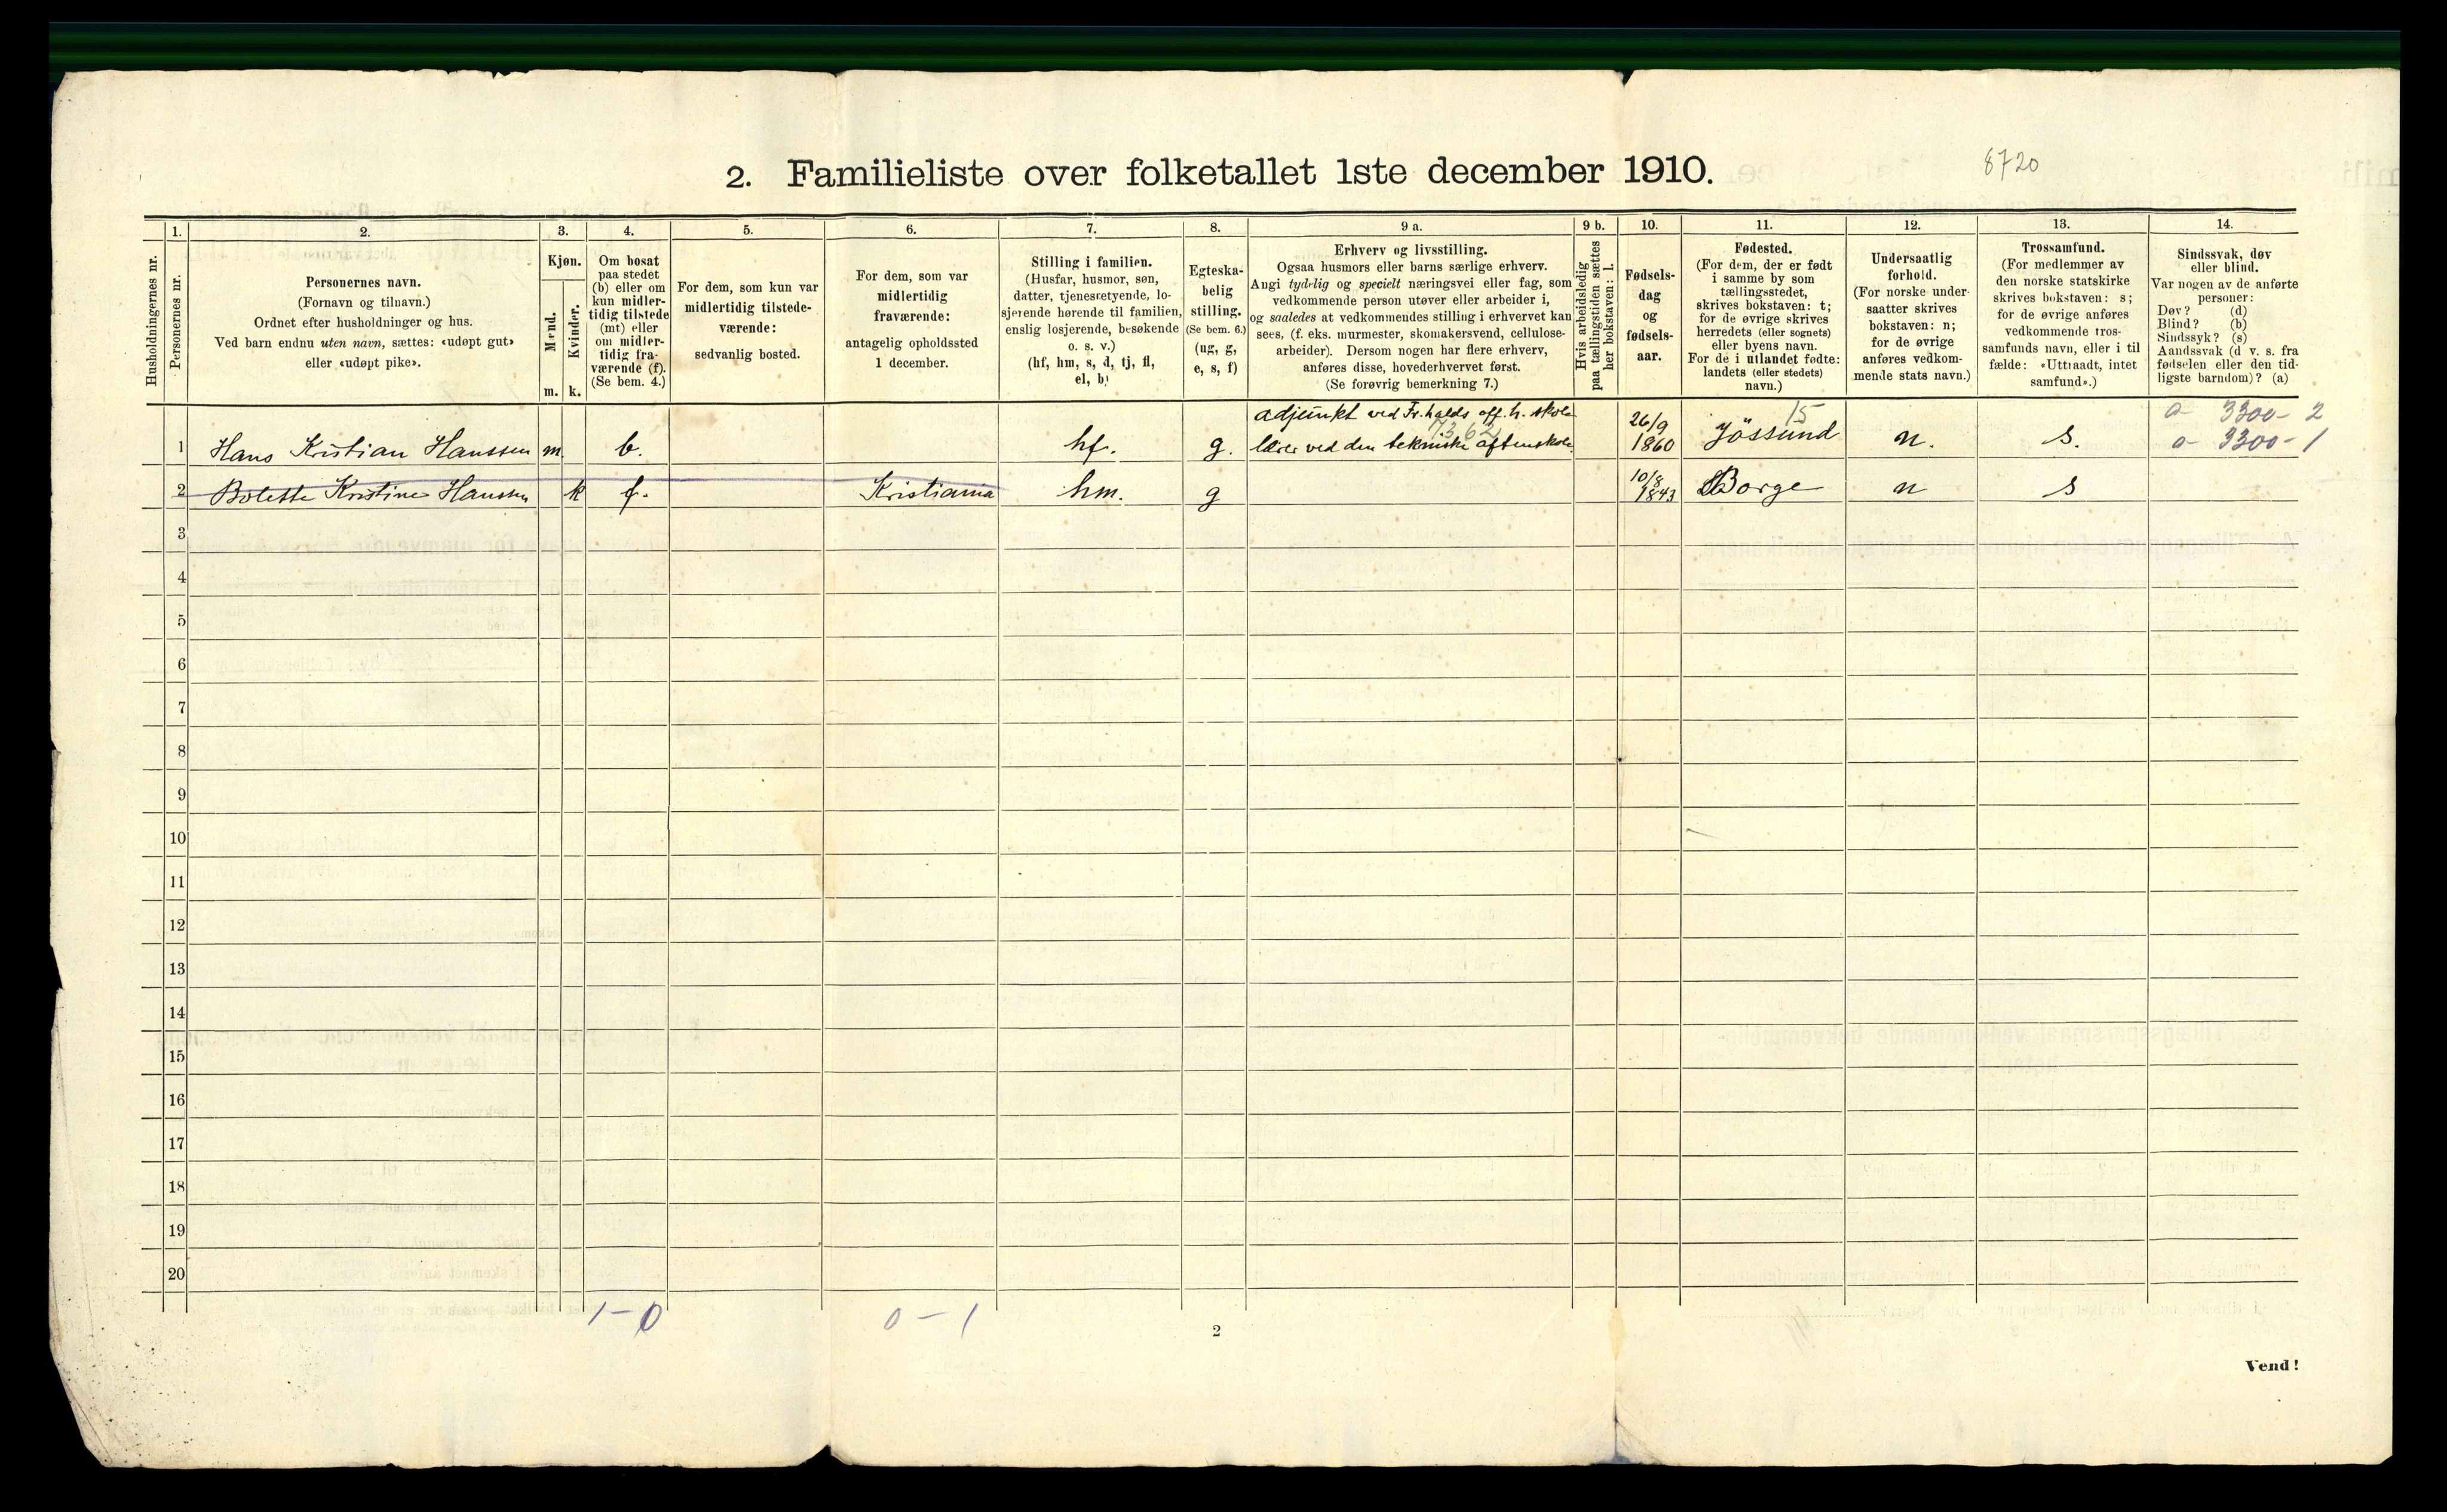 2. Familieliste over folketallet 1ste december 1910.
8720
Husholdningernes nr.
1.
Personernes nr.
2.
Personernes navn.
(Fornavn og tilnavn.)
Ordnet efter husholdninger og hus.
Ved barn endnu uten navn, sættes: «udøpt gut»
eller «udøpt pike».
3.
Kjøn.
Mænd.
Kvinder.
m. k.
4.
Om bosat
paa stedet
(b) eller om
kun midler-
tidig tilstede
(mt) eller
om midler-
tidig fra-
værende (f).
(Se bem. 4.)
5.
For dem, som kun var
midlertidig tilstede-
værende:
sedvanlig bosted.
6.
For dem, som var
midlertidig
fraværende:
antagelig opholdssted
1 december.
7.
Stilling i familien.
(Husfar, husmor, søn,
datter, tjenestetyende, lo-
sjerende hørende til familien,
enslig losjerende, besøkende
o. s. v.)
(hf, hm, s, d, tj, fl,
el, b)
8.
Egteska-
belig
stilling.
(Se bem. 6.)
(ug, g,
e, s, f)
9 a.
Erhverv og livsstilling.
Ogsaa husmors eller barns særlige erhverv.
Angi tydelig og specielt næringsvei eller fag, som
vedkommende person utøver eller arbeider i,
og saaledes at vedkommendes stilling i erhvervet kan
sees, (f. eks. murmester, skomakersvend, cellulose-
arbeider). Dersom nogen har flere erhverv,
anføres disse, hovederhvervet først.
(Se forøvrig bemerkning 7.)
9 b.
Hvis arbeidsledig
paa tællingstiden sættes
her bokstaven: l.
10.
Fødsels-
dag
og
fødsels-
aar.
11.
Fødested.
(For dem, der er født
i samme by som
tællingsstedet,
skrives bokstaven: t;
for de øvrige skrives
herredets (eller sognets)
eller byens navn.
For de i utlandet fødte:
landets (eller stedets)
navn.)
12.
Undersaatlig
forhold.
(For norske under-
saatter skrives
bokstaven: n;
for de øvrige
anføres vedkom-
mende stats navn.)
13.
Trossamfund.
(For medlemmer av
den norske statskirke
skrives bokstaven: s;
for de øvrige anføres
vedkommende tros-
samfunds navn, eller i til
fælde: «Uttraadt, intet
samfund».)
14.
Sindssvak, døv
eller blind.
Var nogen av de anførte
personer:
Døv? (d)
Blind? (b)
Sindssyk? (s)
Aandssvak (d v. s. fra
fødselen eller den tid-
ligste barndom)? (a)
adjunkt ved Fr.halds off. h. skole 26/9 15 a 3300-2
7362
1 Hans Kristian Hanssen m. b. hf. g. lærer ved den tekniske aftenskole. 1860 Jössund n. s. a 3300-1
10/8
2 Bolette Kristine Hanssen k f. Kristiania hm. g 1843 Borge n s
3
4
5
6
7
8
9
10
11
12
13
14
15
16
17
18
19
20
1-0 0-1
2
Vend!